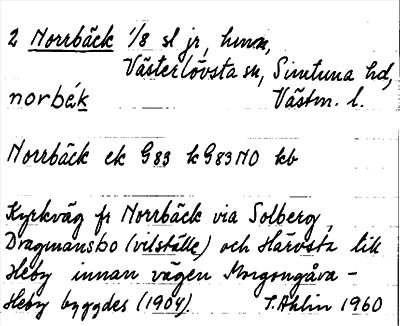 2 Norrbäck 1/8 sl jr, hmn,
Västerlövsta sn, Simtuna hd,
norbäk Västm. l.
Norrbäck ek G83 k G83NO kb
Kyrkväg fr Norrbäck via Solberg,
Dragmansbo (vilställe) och Härvsta till
Heby innan vägen Morgongåva -
Heby byggdes (1904). T. Ahlin 1960